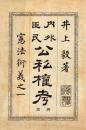 井上毅著
內外
臣民
公私權考
憲法衍義之一